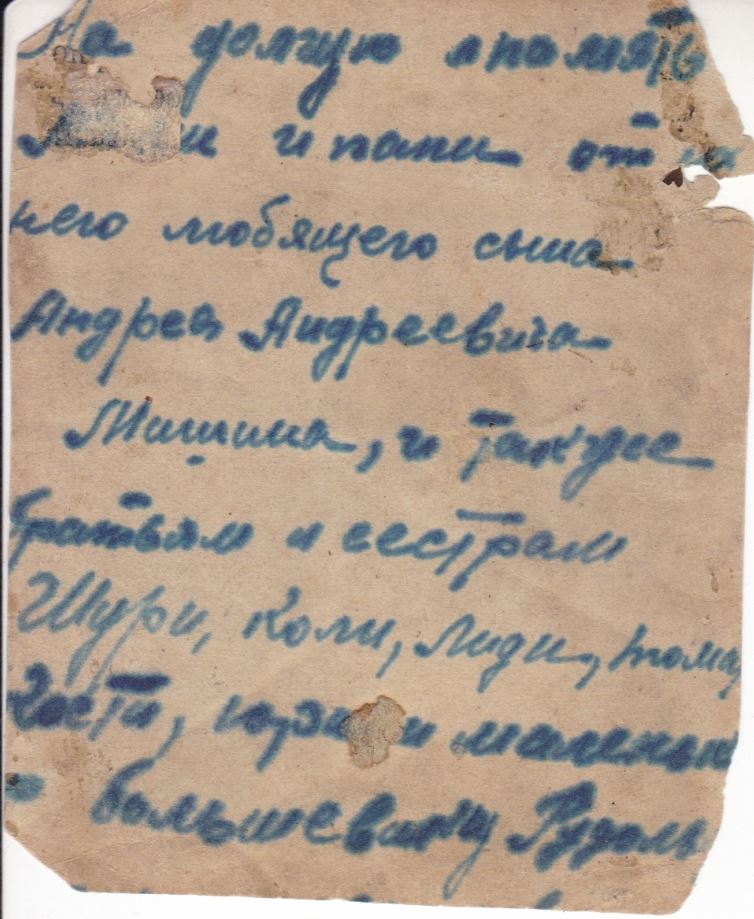 На долгую память
и папи от
него любящего сына
Андрея Андреевича
Мишина, и также
братьям и сестрам
Шури, Коли, Лиди, Тома,
Кости, и маленьк
большевику Рудоль